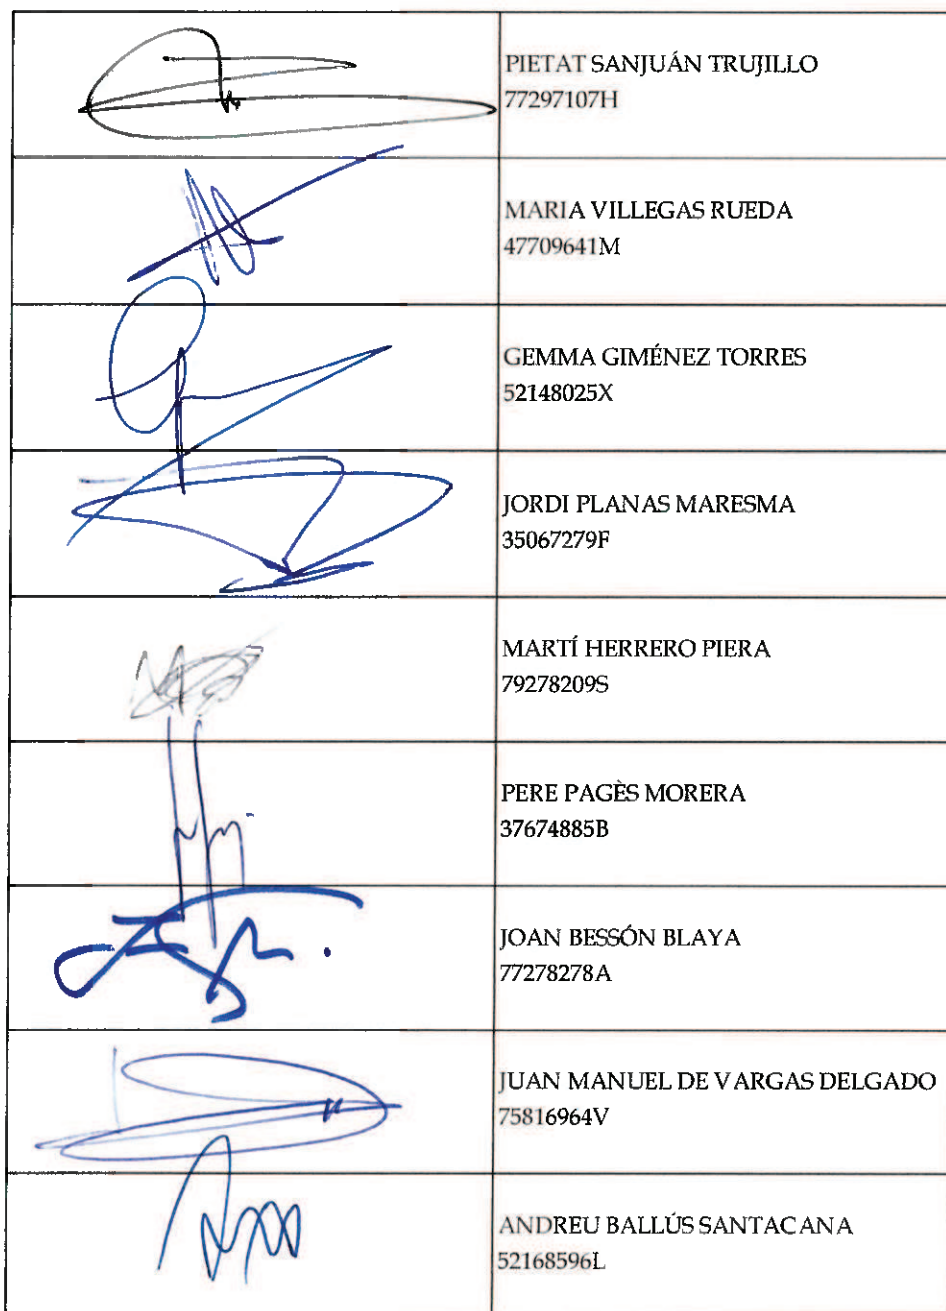 PIETAT SANJUÁN TRUJILLO
77297107H
MARIA VILLEGAS RUEDA
47709641M
GEMMA GIMÉNEZ TORRES
52148025X
JORDI PLANAS MARESMA
35067279F
MARTÍ HERRERO PIERA
79278209S
PERE PAGÈS MORERA
37674885B
JOAN BESSÓN BLAYA
77278278A
JUAN MANUEL DE VARGAS DELGADO
75816964V
ANDREU BALLÚS SANTACANA
52168596L